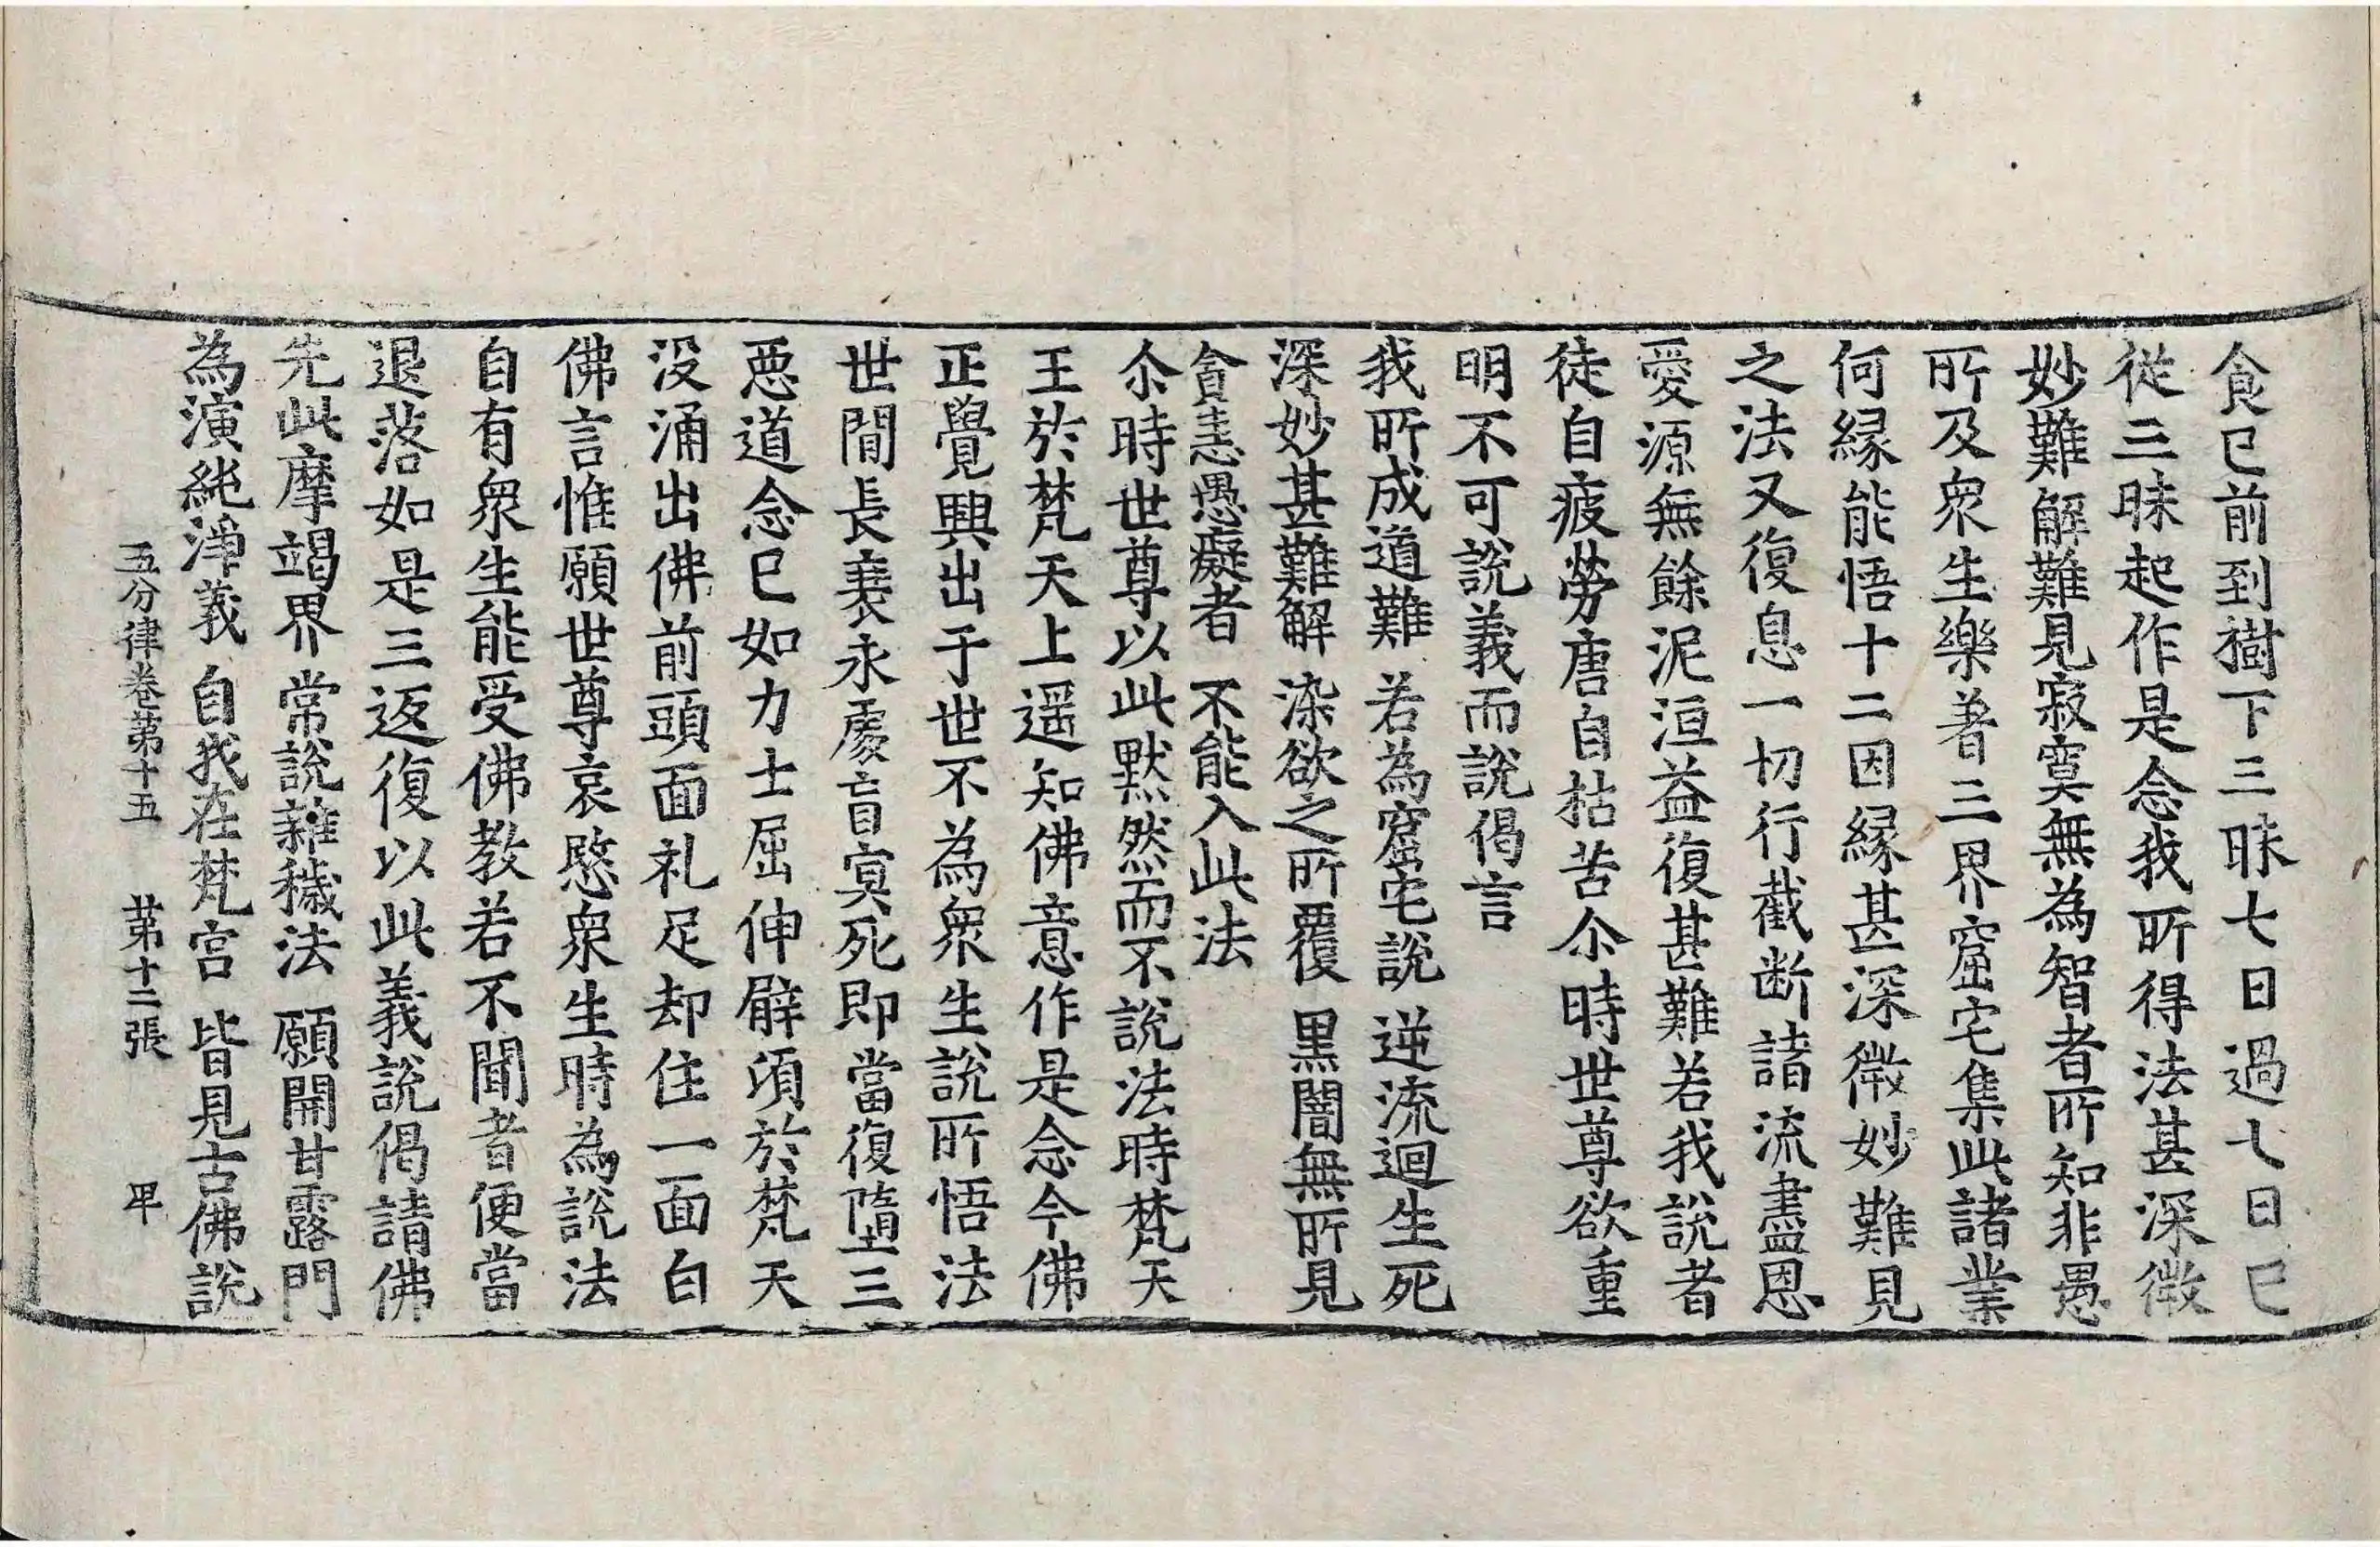 食已前到樹下三昧七日過七日已
從三昧起作是念我所得法甚深微
妙難解難見寂寞無為智者所知非愚
所及衆生樂著三界窟宅集此諸業
何緣能悟十二因緣甚深微妙難見
之法又復息一切行截断諸流盡恩
愛源無餘泥洹益復甚難若我說者
徒自疲勞唐自枯苦尒時世尊欲重
明不可說義而說偈言
我所成道難　若為窟宅說　逆流迴生死
深妙甚難解　染欲之所覆　黑闇無所見
貪恚愚癡者　不能入此法
尒時世尊以此默然而不說法時梵天
王於梵天上遥知佛意作是念今佛
正覺興出于世不為衆生說所悟法
世間長衰永處盲冥死即當復墮三
惡道念已如力士屈伸臂頃於梵天
没涌出佛前頭面礼足却住一面白
佛言惟願世尊哀愍衆生時為說法
自有衆生能受佛教若不聞者便當
退落如是三返復以此義說偈請佛
先此摩竭界　常說雜穢法　願開甘露門
為演純淨義　自我在梵宮　皆見古佛說
五分律卷第十五　第十二張